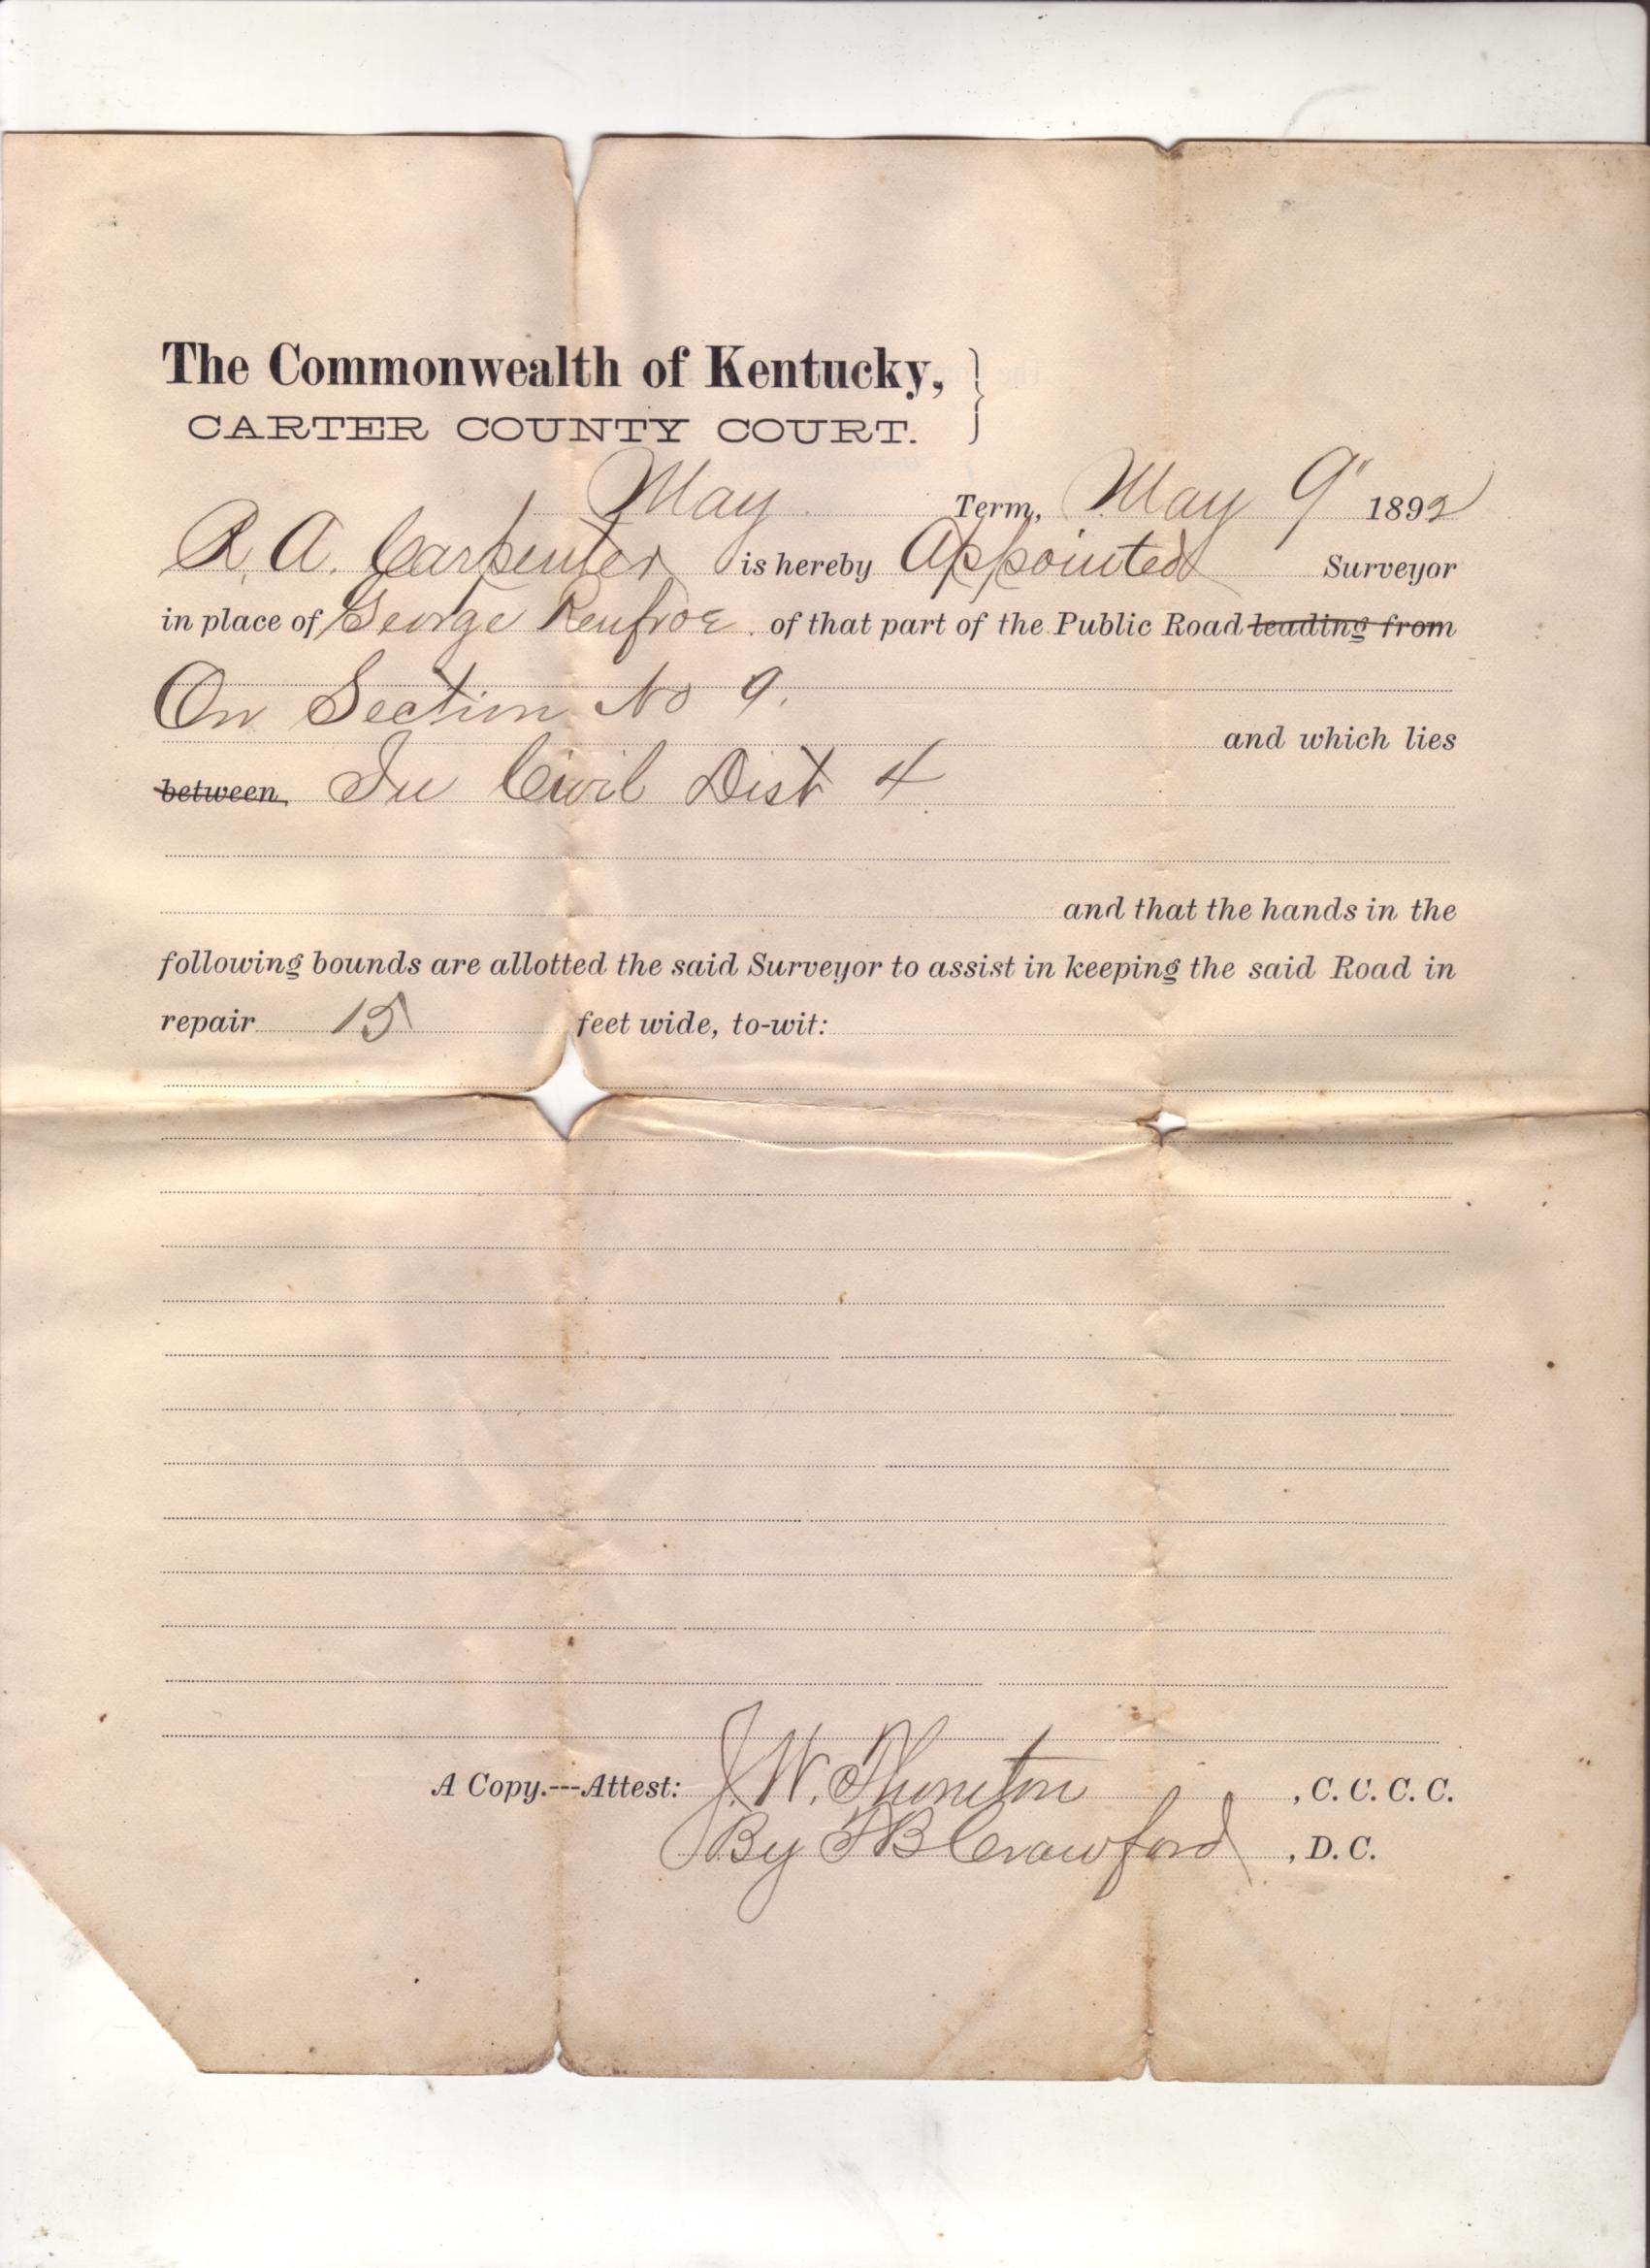 The Commonwealth of Kentucky, }
CARTER COUNTY COURT.
May Term, May 9" 1892
R. A. Carpenter is hereby Appointed Surveyor
in place of George Renfroe of that part of the Public Road leading from
On Section No 9.
and which lies
between, In Civil Dist 4
and that the hands in the
following bounds are allotted the said Surveyor to assist in keeping the said Road in
repair 15 feet wide, to-wit:
A Copy.---Attest: J. W. , C. C. C. C.
By Crawford , D. C.